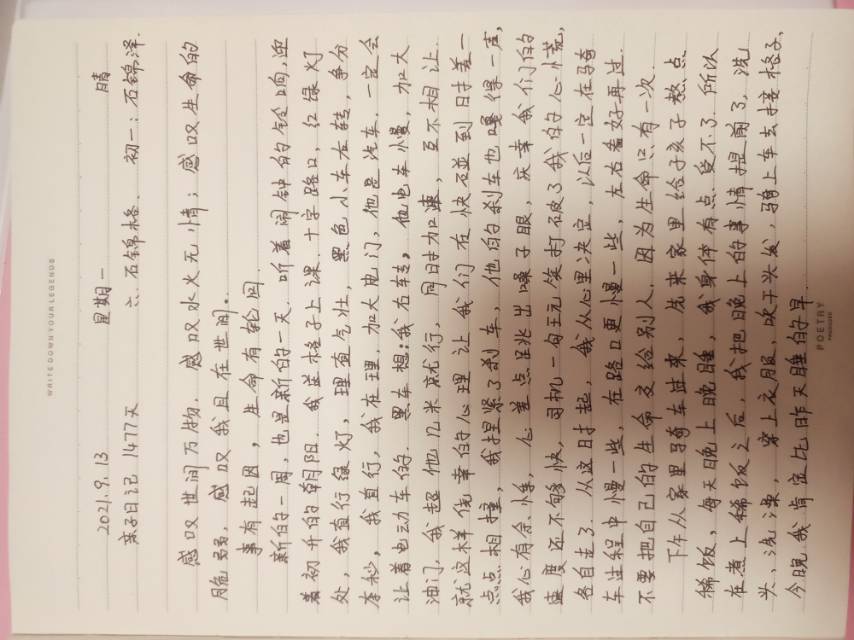 WRITE DOWN YOUR LEGENDS
2021.9.13 星期一 晴
亲子日记1477天 六：石锦格、 初一：石锦泽.
感叹世间万物. 感叹水火无情；感叹生命的
脆弱，感叹我且在世间。
事有起因，生命有轮回.
新的一周，也是新的一天. 听着闹钟的铃响,迎
着初升的朝阳. 我送格子上课. 十字路口，红绿灯
处，我直行绿灯，理直气壮，黑色小车左转，争分
夺秒，我直行，我在理，加大电门，他是汽车，一定会
让着电动车的. 黑车想:我右转，他电车慢，加大
油门，我超他几米就行，同时加速，互不相让.
就这样侥幸的心理让我们在快碰到时差一
点点相撞，我捏紧了刹车，他的刹车也嘎得一声,
我心有余悸，心差点跳出嗓子眼，庆幸我们的
速度还不够快，司机一句玩笑打破了我的心慌,
各自走了. 从这时起，我从心里决定，以后一定在骑
车过程中慢一些，在路口更慢一些，左右看好再过.
不要把自己的生命交给别人，因为生命只有一次.
下午从家里骑车过来，先来家里给孩子熬点
稀饭，每天晚上晚睡，我身体有点受不了. 所以
在煮上稀饭之后，我把晚上的事情提前了，洗
头、洗澡，穿上衣服，吹干头发，骑上车去接格子，
今晚我肯定比昨天睡的早.
POETRY